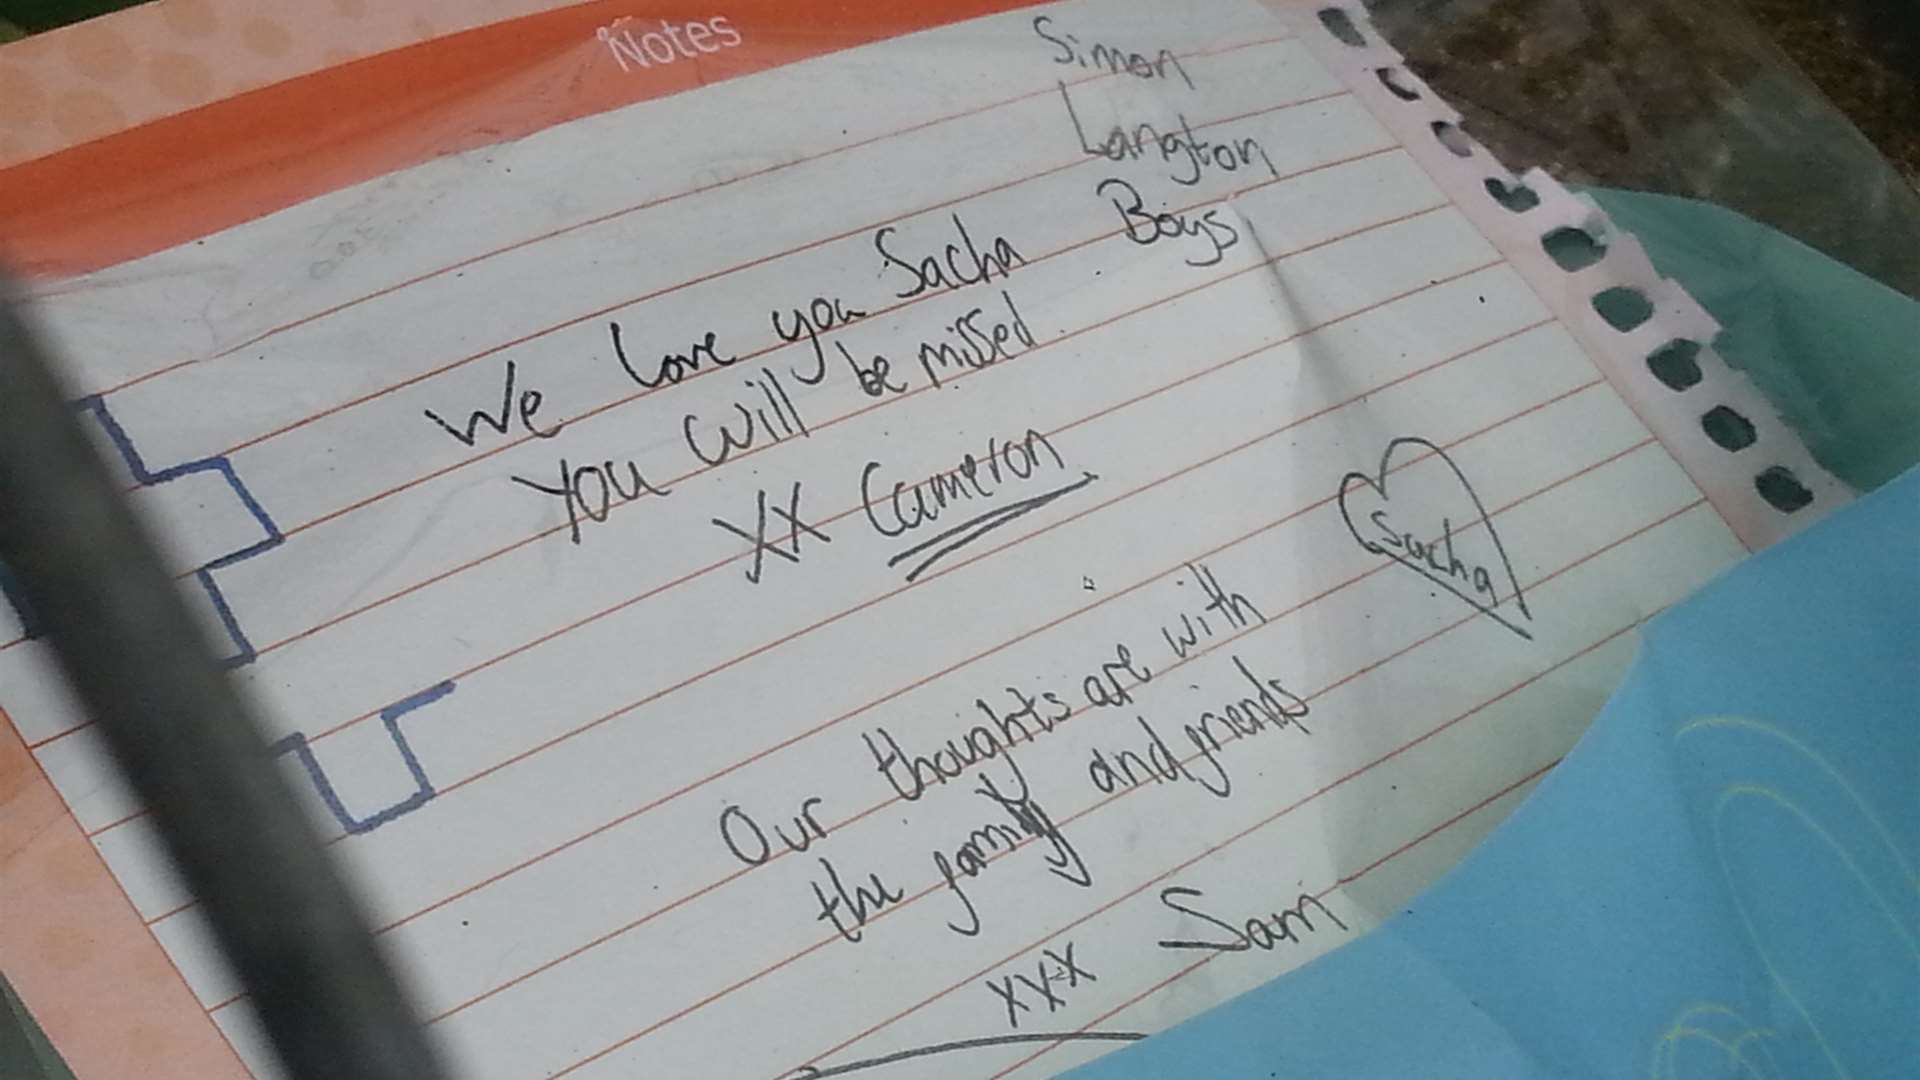 Notes
Simon
Langton
Boys
We love you Sacha
You will be missed
XX Cameron
Sacha
Our thoughts are with
the family and friends
xxx Sam